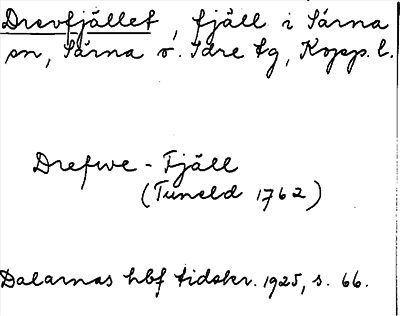 Drevfjället, fjäll i Särna
sn, Särna o. Idre tg, Kopp. l.
Drefwe-Fjäll
(Tuneld 1762)
Dalarnas hbf tidskr. 1925, s. 66.